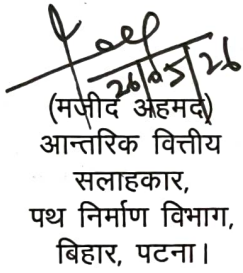 26/05/26
(मजीद अहमद)
आन्तरिक वित्तीय
सलाहकार,
पथ निर्माण विभाग,
बिहार, पटना।